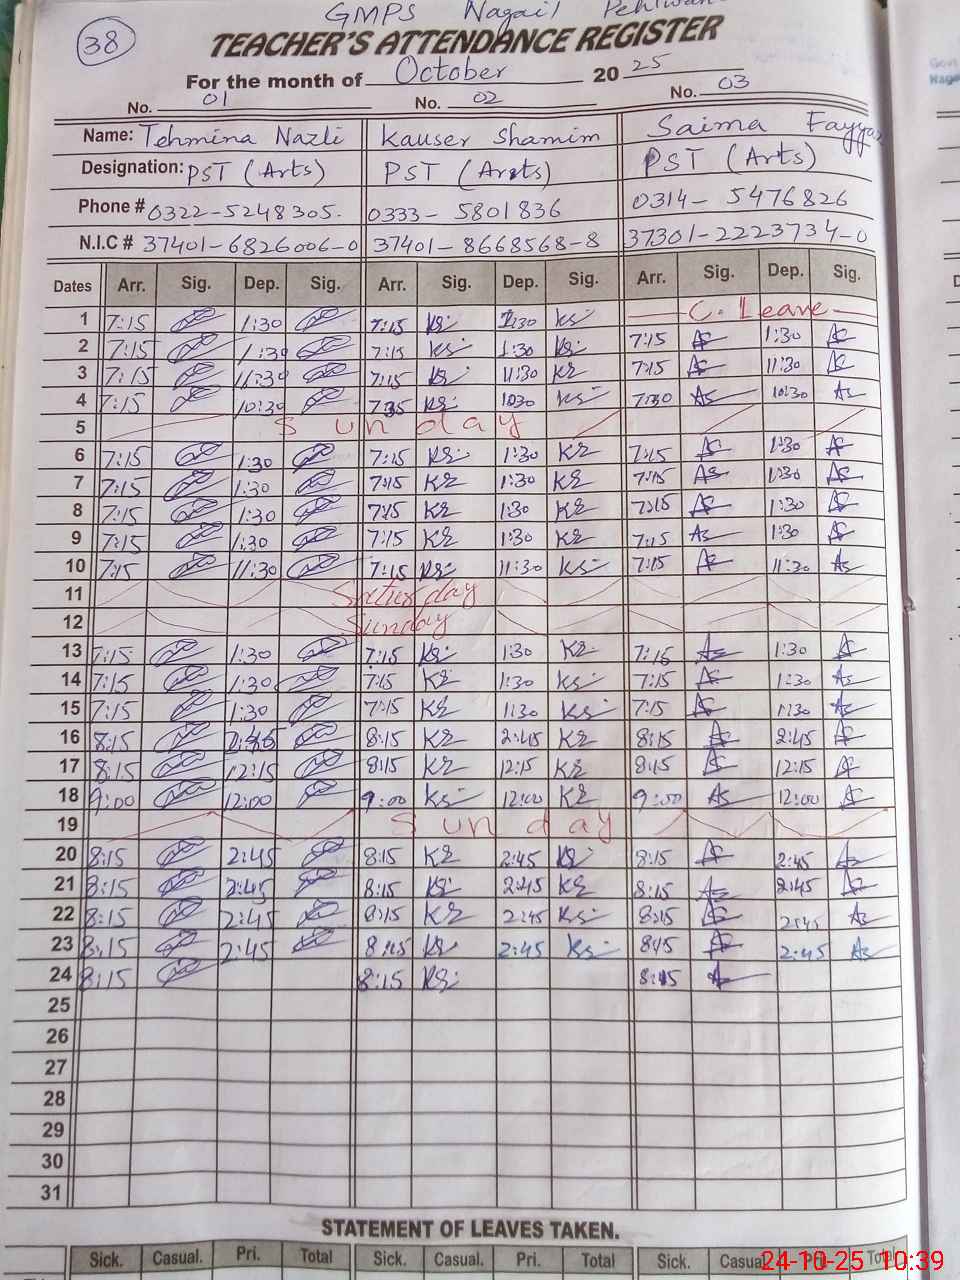 38
GMPS Nagail
TEACHER'S ATTENDANCE REGISTER
For the month of October 2025
No. 01 No. 02 No. 03
Name: Tehmina Nazli Kauser Shamim Saima Fayyaz
Designation: PST (Arts) PST (Arts) PST (Arts)
Phone # 0322-5248305. 0333-5801836 0314-5476826
N.I.C # 37401-6826006-0 37401-8668568-8 37301-2223734-0
Dates Arr. Sig. Dep. Sig. Arr. Sig. Dep. Sig. Arr. Sig. Dep. Sig.
1 7:15 1:30 7:15 Ks 1:30 Ks C. Leave
2 7:15 1:30 7:15 Ks 1:30 Ks 7:15 As 1:30 As
3 7:15 11:30 7:15 Ks 11:30 Ks 7:15 As 11:30 As
4 7:15 10:30 Ks 10:30 Ks 7:30 As 10:30 As
5 Sunday
6 7:15 1:30 7:15 Ks 1:30 Ks 7:15 As 1:30 As
7 7:15 1:30 7:15 Ks 1:30 Ks 7:15 As 1:30 As
8 7:15 1:30 7:15 Ks 1:30 Ks 7:15 As 1:30 As
9 7:15 1:30 7:15 Ks 1:30 Ks 7:15 As 1:30 As
10 7:15 11:30 7:15 Ks 11:30 Ks 7:15 As 11:30 As
11 Saturday
12 Sunday
13 7:15 1:30 7:15 Ks 1:30 Ks 7:15 As 1:30 As
14 7:15 1:30 7:15 Ks 1:30 Ks 7:15 As 1:30 As
15 7:15 1:30 7:15 Ks 1:30 Ks 7:15 As 1:30 As
16 8:15 2:45 8:15 Ks 2:45 Ks 8:15 As 2:45 As
17 8:15 12:15 8:15 Ks 12:15 Ks 8:15 As 12:15 As
18 9:00 12:00 9:00 Ks 12:00 Ks 9:00 As 12:00 As
19 Sunday
20 8:15 2:45 8:15 Ks 2:45 Ks 8:15 As 2:45 As
21 8:15 2:45 8:15 Ks 2:45 Ks 8:15 As 2:45 As
22 8:15 2:45 8:15 Ks 2:45 Ks 8:15 As 2:45 As
23 8:15 2:45 8:15 Ks 2:45 Ks 8:15 As 2:45 As
24 8:15 8:15 Ks 8:15 As
25
26
27
28
29
30
31
STATEMENT OF LEAVES TAKEN.
Sick. Casual. Pri. Total Sick. Casual. Pri. Total Sick. Casual Pri. Total
24-10-25 10:39